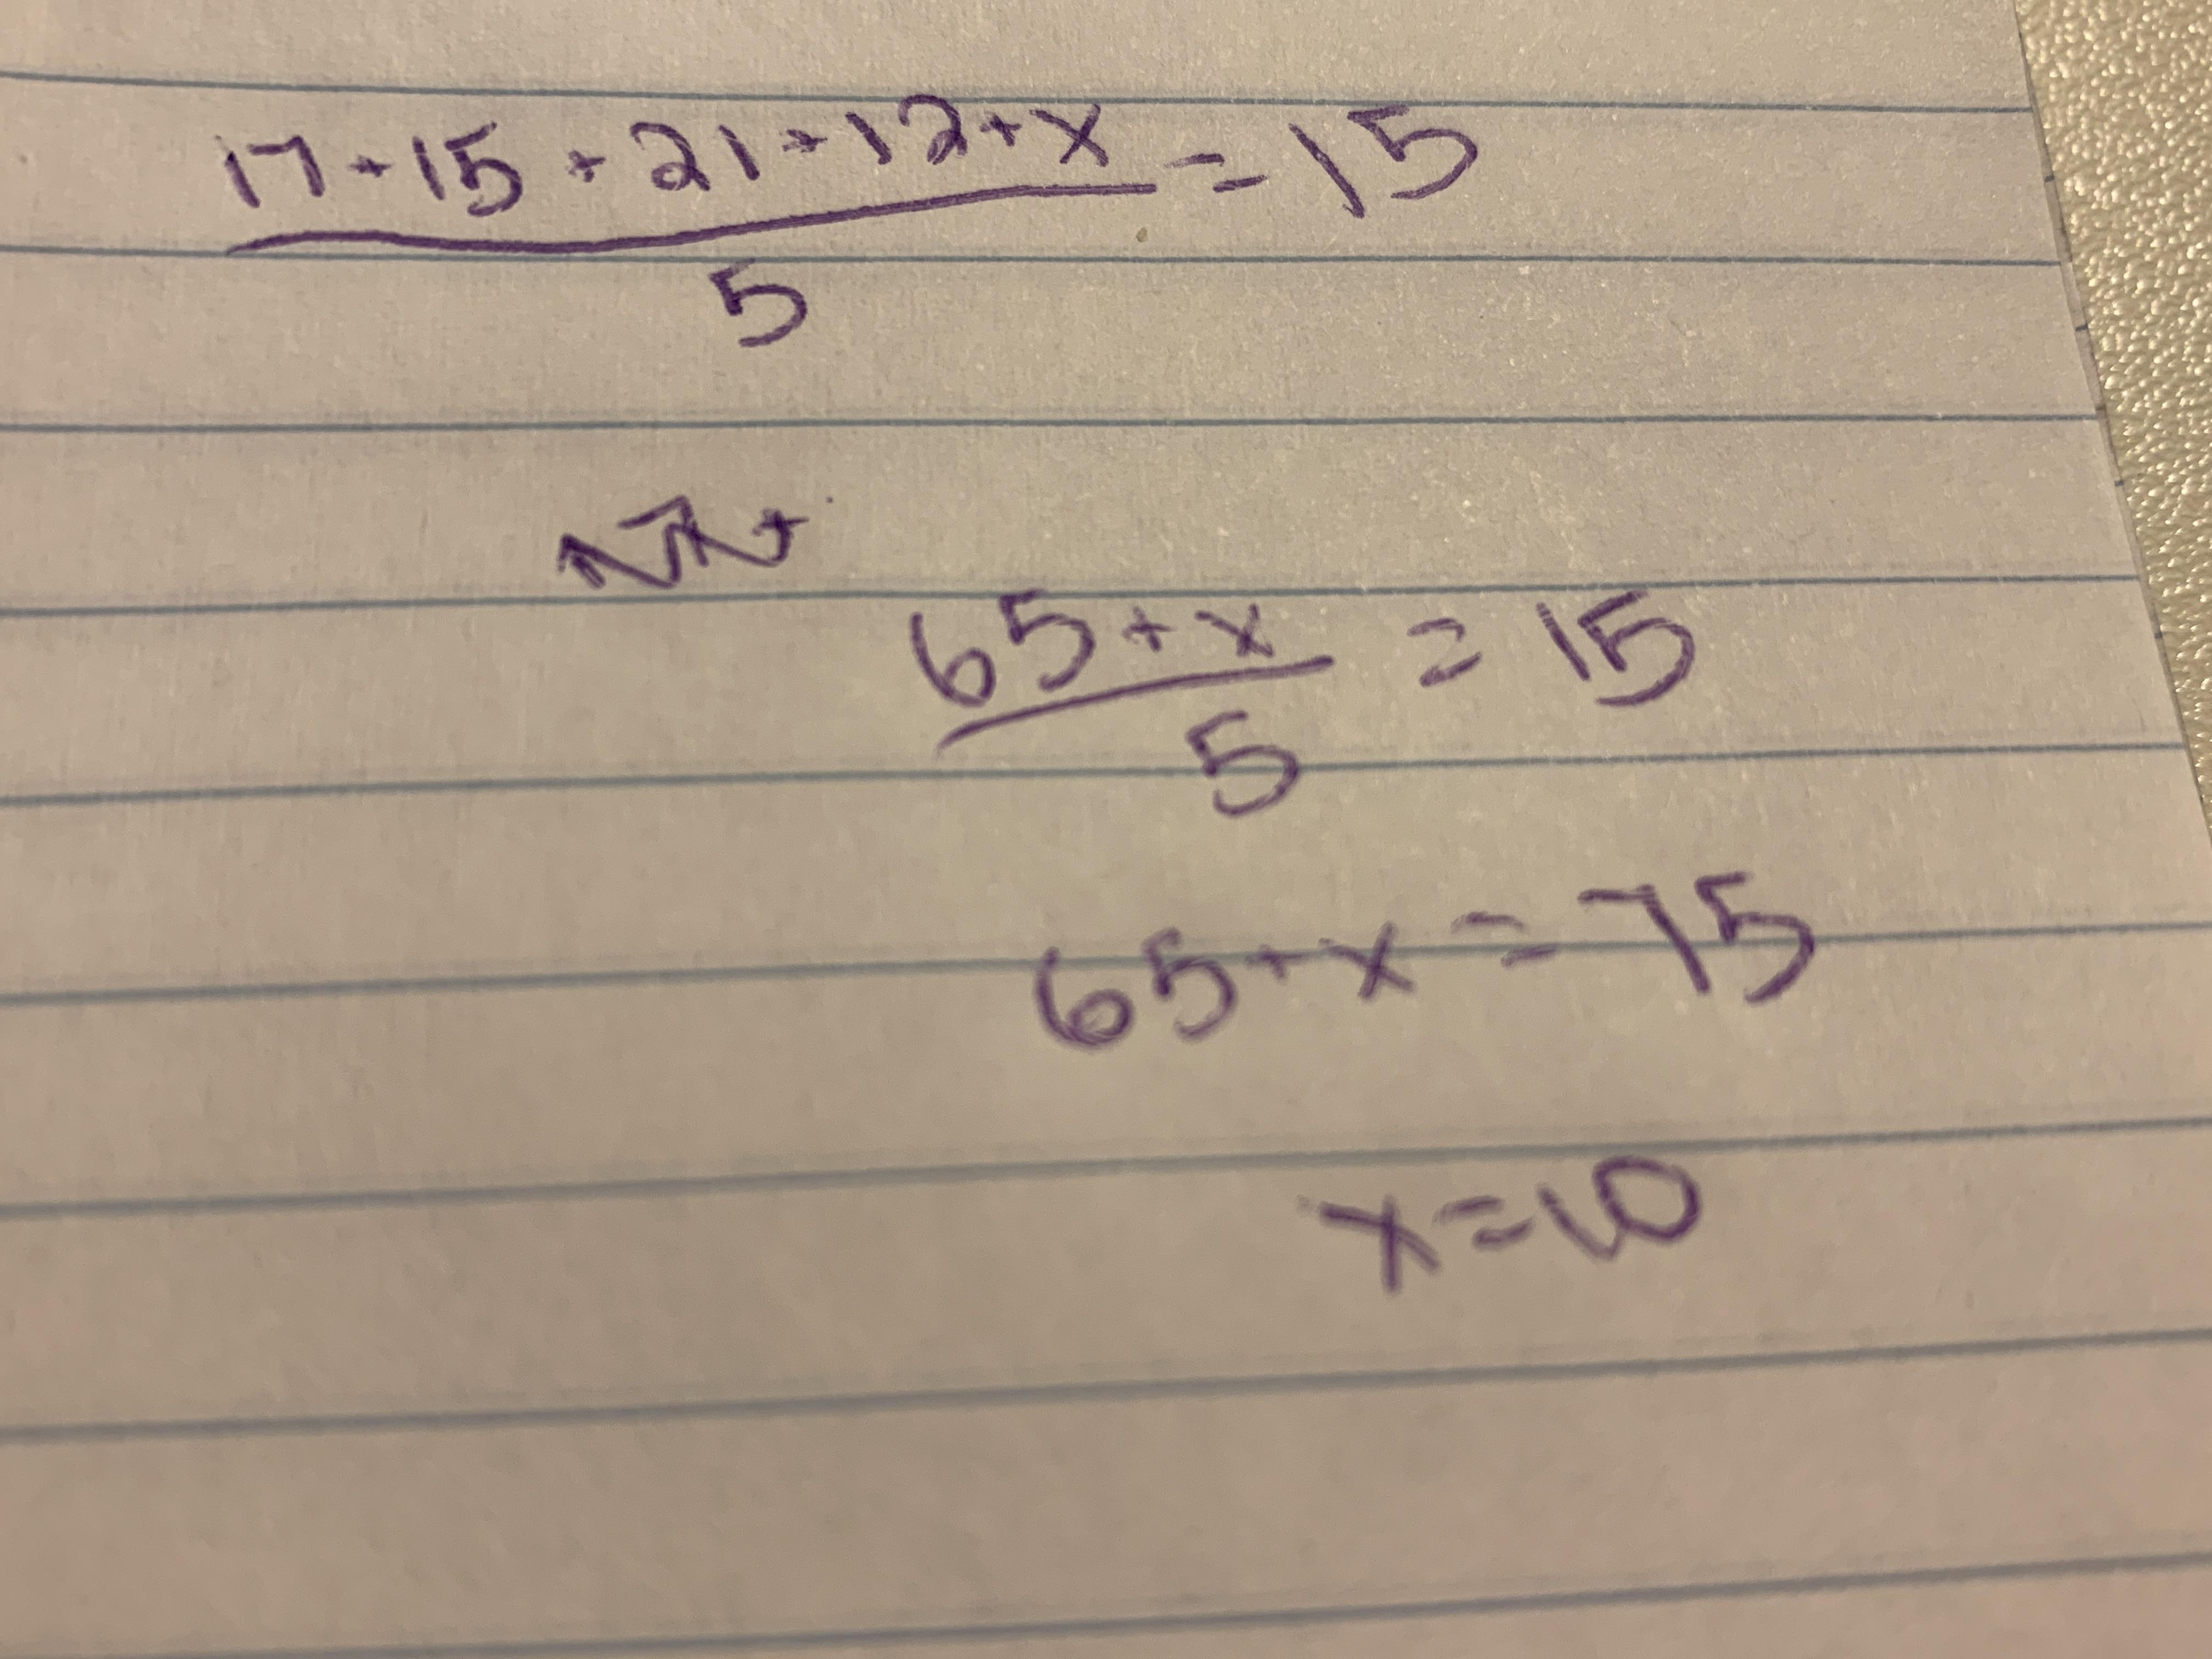 17+15+21+12+x = 15
5
65+x = 15
5
65+x=75
x=10